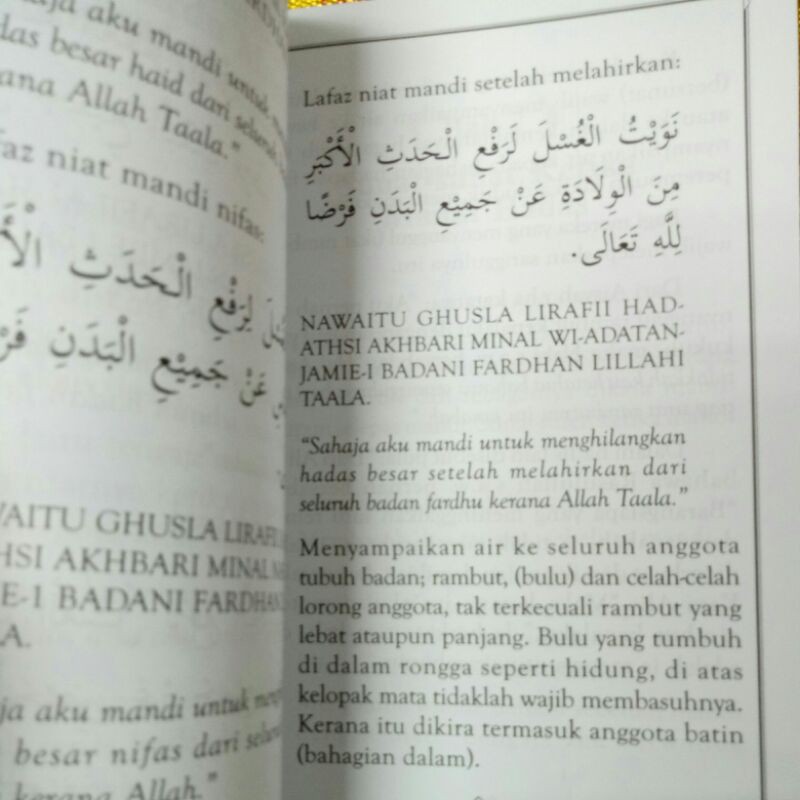 aku mandi untuk
besar haid dari
Allah Taala."
niat mandi nifas:
الْحَدَثِ
عَنْ جَمِيْعِ الْبَدَنِ
GHUSLA
AKHBARI MINAL
BADANI FARDHAN
aku mandi untuk
besar nifas dari
kerana Allah."
Lafaz niat mandi setelah melahirkan:
نَوَيْتُ الْغُسْلَ لَرَفْعِ الْحَدَثِ الْأَكْبَرِ
مِنَ الْوِلَادَةِ عَنْ جَمِيْعِ الْبَدَنِ فَرْضًا
لِلَّهِ تَعَالَى.
NAWAITU GHUSLA LIRAFII HAD-
ATHSI AKHBARI MINAL WI-ADATAN-
JAMIE-I BADANI FARDHAN LILLAHI
TAALA.
"Sahaja aku mandi untuk menghilangkan
hadas besar setelah melahirkan dari
seluruh badan fardhu kerana Allah Taala."
Menyampaikan air ke seluruh anggota
tubuh badan; rambut, (bulu) dan celah-celah
lorong anggota, tak terkecuali rambut yang
lebat ataupun panjang. Bulu yang tumbuh
di dalam rongga seperti hidung, di atas
kelopak mata tidaklah wajib membasuhnya.
Kerana itu dikira termasuk anggota batin
(bahagian dalam).